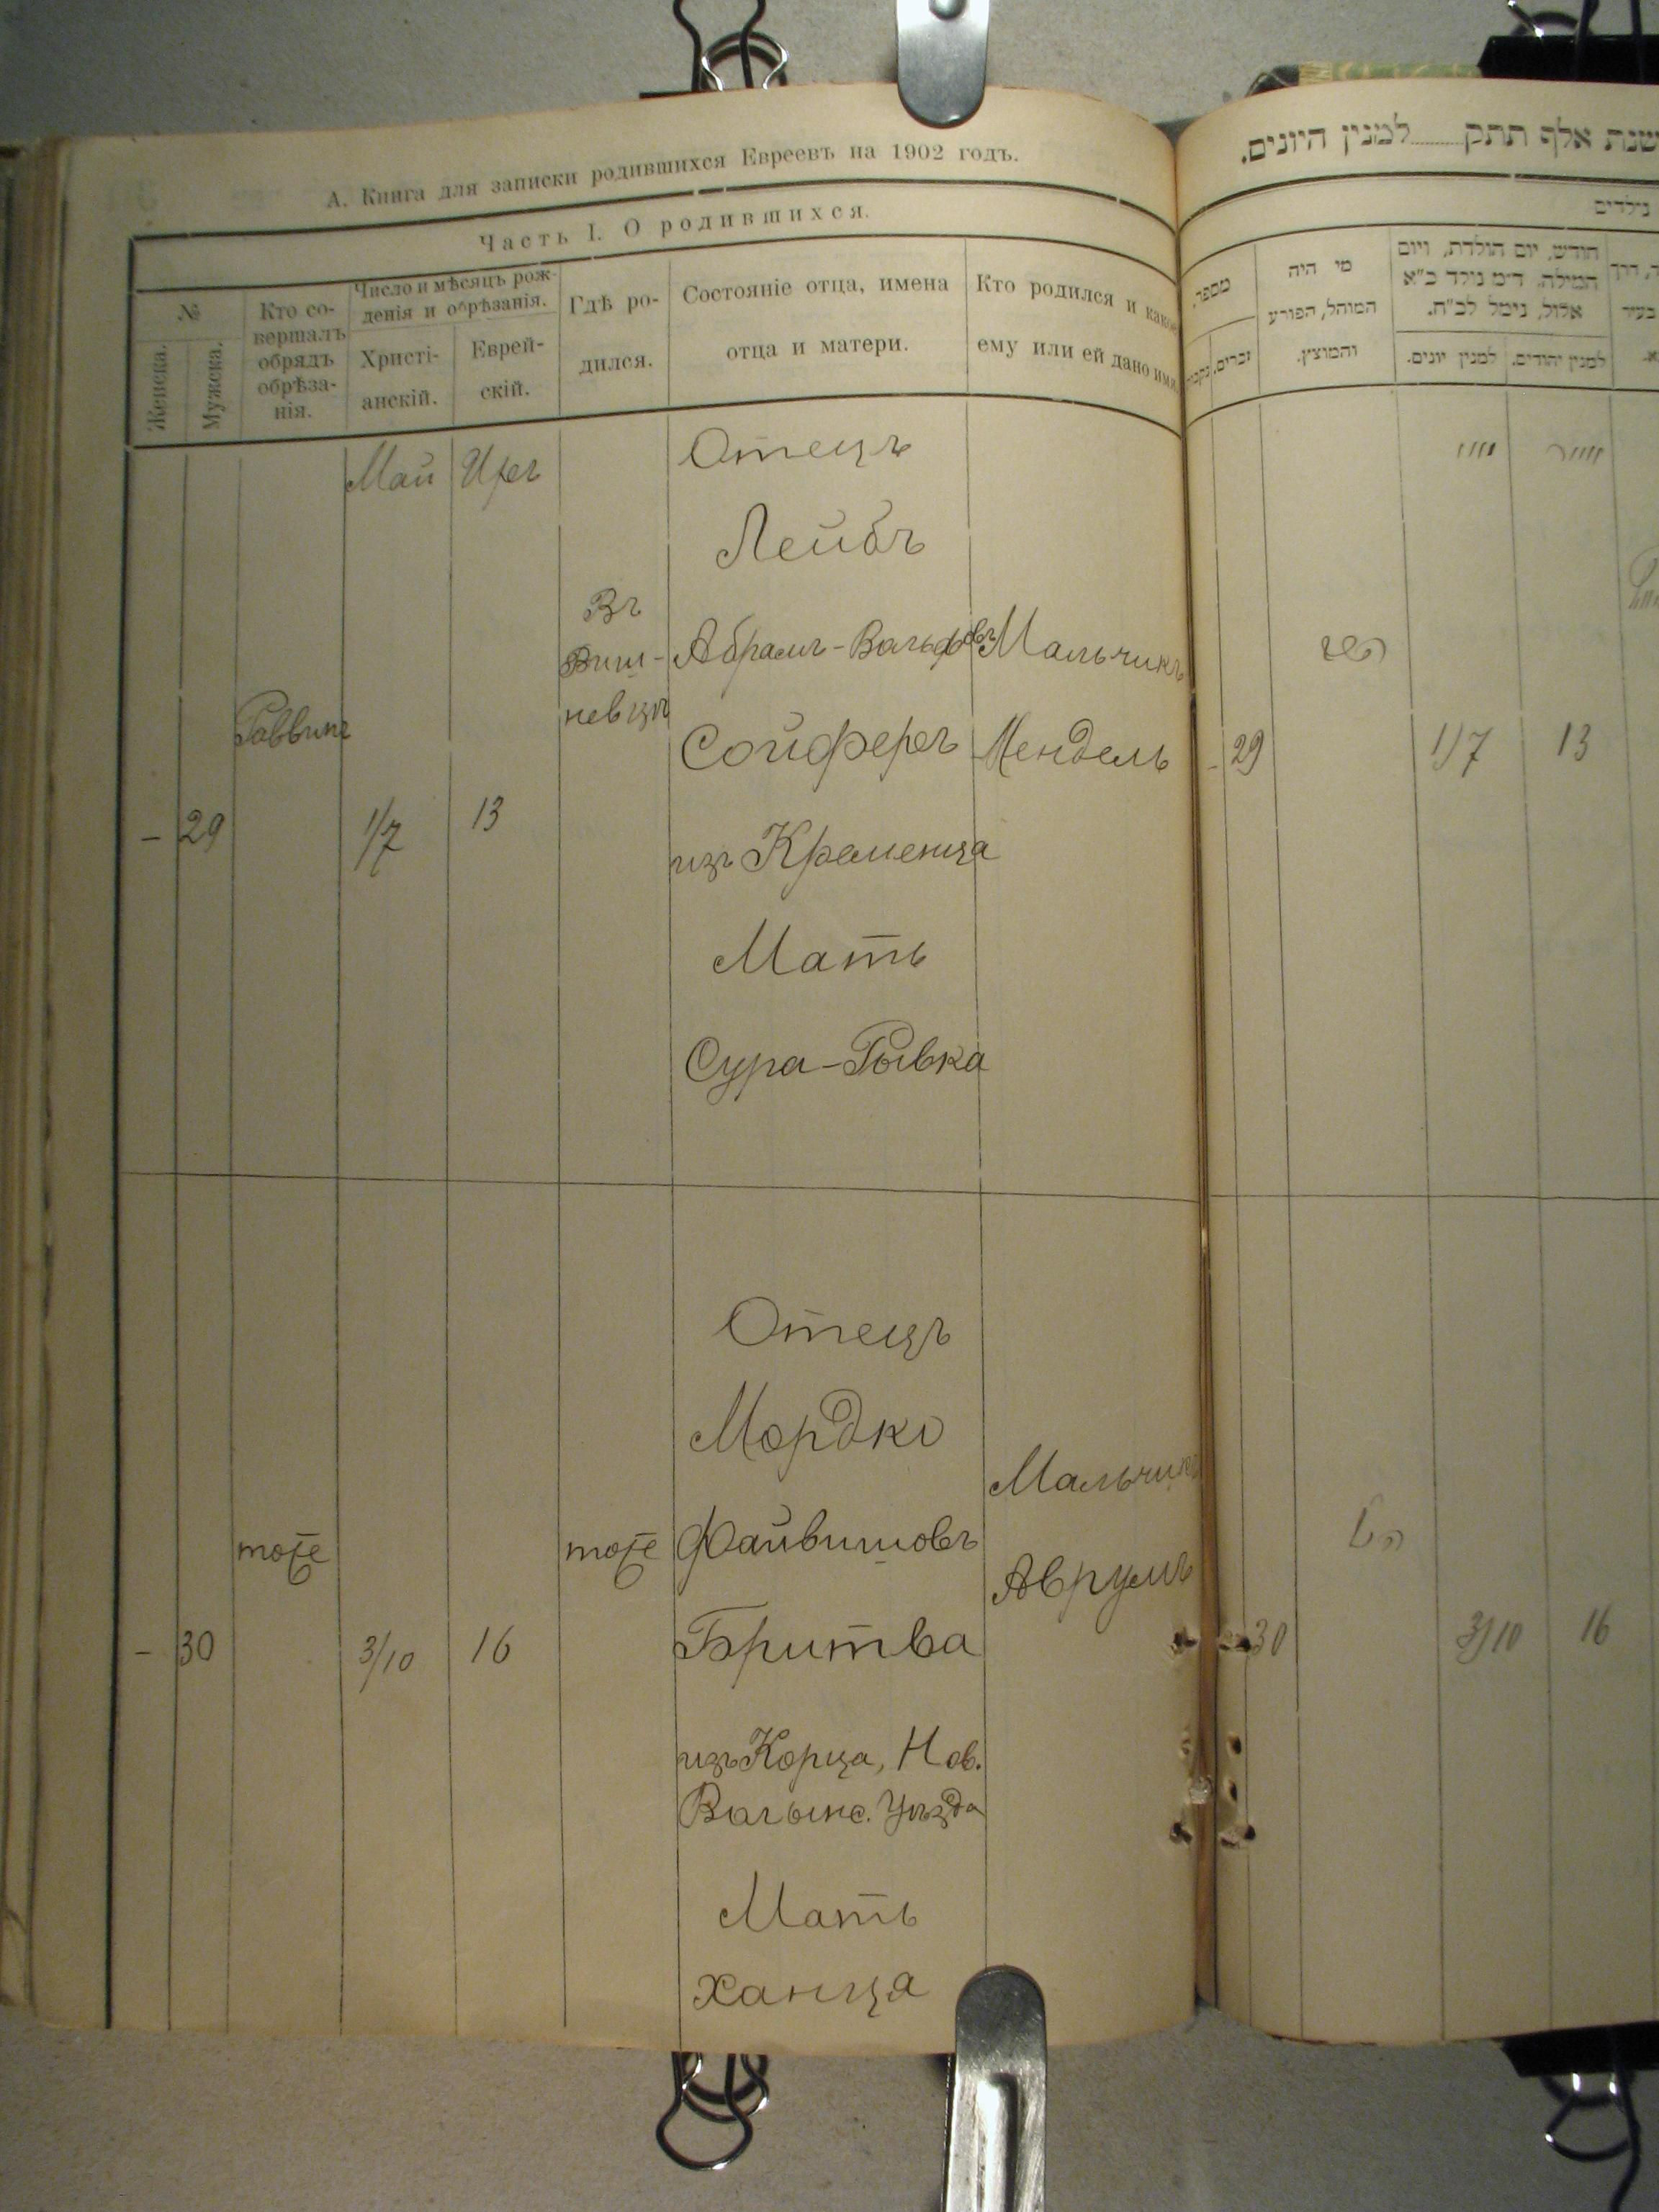 А. Книга для записки родившихся Евреевъ на 1902 годъ.
Часть I. О родившихся.
№
Женска.
Мужска.
Кто со-
вершалъ
обрядъ
обрѣза-
нія.
Число и мѣсяцъ рож-
денія и обрѣзанія.
Христі-
анскій.
Еврей-
скій.
Гдѣ ро-
дился.
Состояніе отца, имена
отца и матери.
Кто родился и какое
ему или ей дано имя.
Май
Иръ
Отецъ
Лейбъ
Въ
Виш-
невцѣ
Абрамъ-Вольфовъ
Мальчикъ
Раввинъ
Сойферъ
Мендель
- 29
1/7
13
изъ Кременца
Мать
Сура-Рывка
Отецъ
Мордко
Мальчикъ
тоже
тоже
Файвишовъ
Аврумъ
- 30
3/10
16
Бритва
изъ Корца, Нов.
Волынс. Уѣзда
Мать
Ханца
שנת אלף תתק למנין היונים.
נילדים
מספר
זכרים.
מי היה
המוהל, הפורע
והמוצץ.
חודש, יום הולדת, ויום
המילה. ד״מ נולד ב״א
אלול, נימל לכ״ח.
למנין יונים.
למנין יהודים.
- 29
1/7
13
30
3/10
16